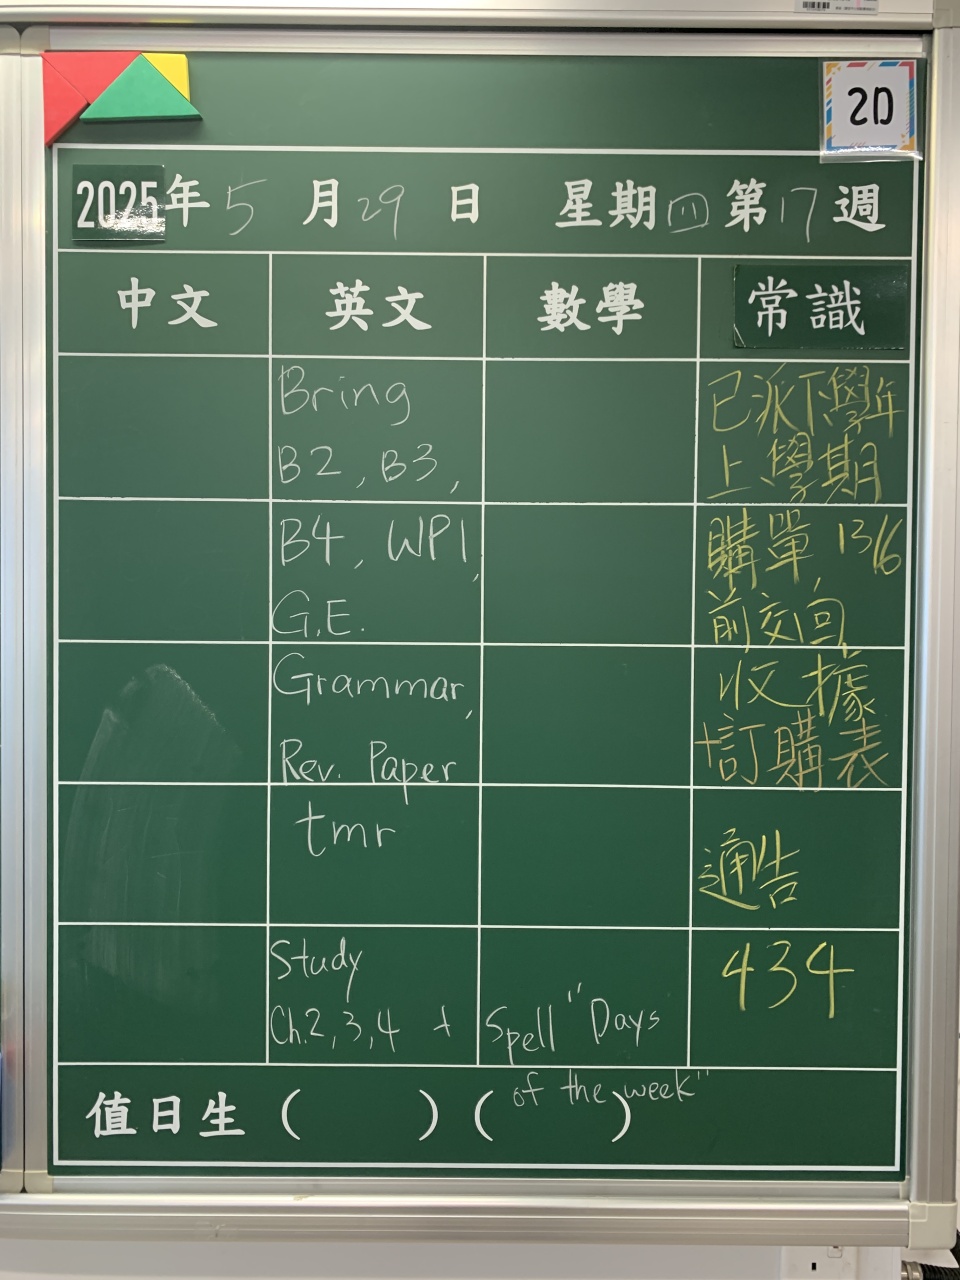 2D
2025年 5 月 29 日 星期四 第17週
中文 英文 數學 常識
Bring
B2, B3,
B4, WP1,
G.E.
Grammar,
Rev. Paper
tmr
Study
Ch.2,3,4 + Spell "Days
of the week"
已派下學年
上學期
購單 13/6
前交回
收據
+訂購表
通告
434
值日生 ( ) ( )